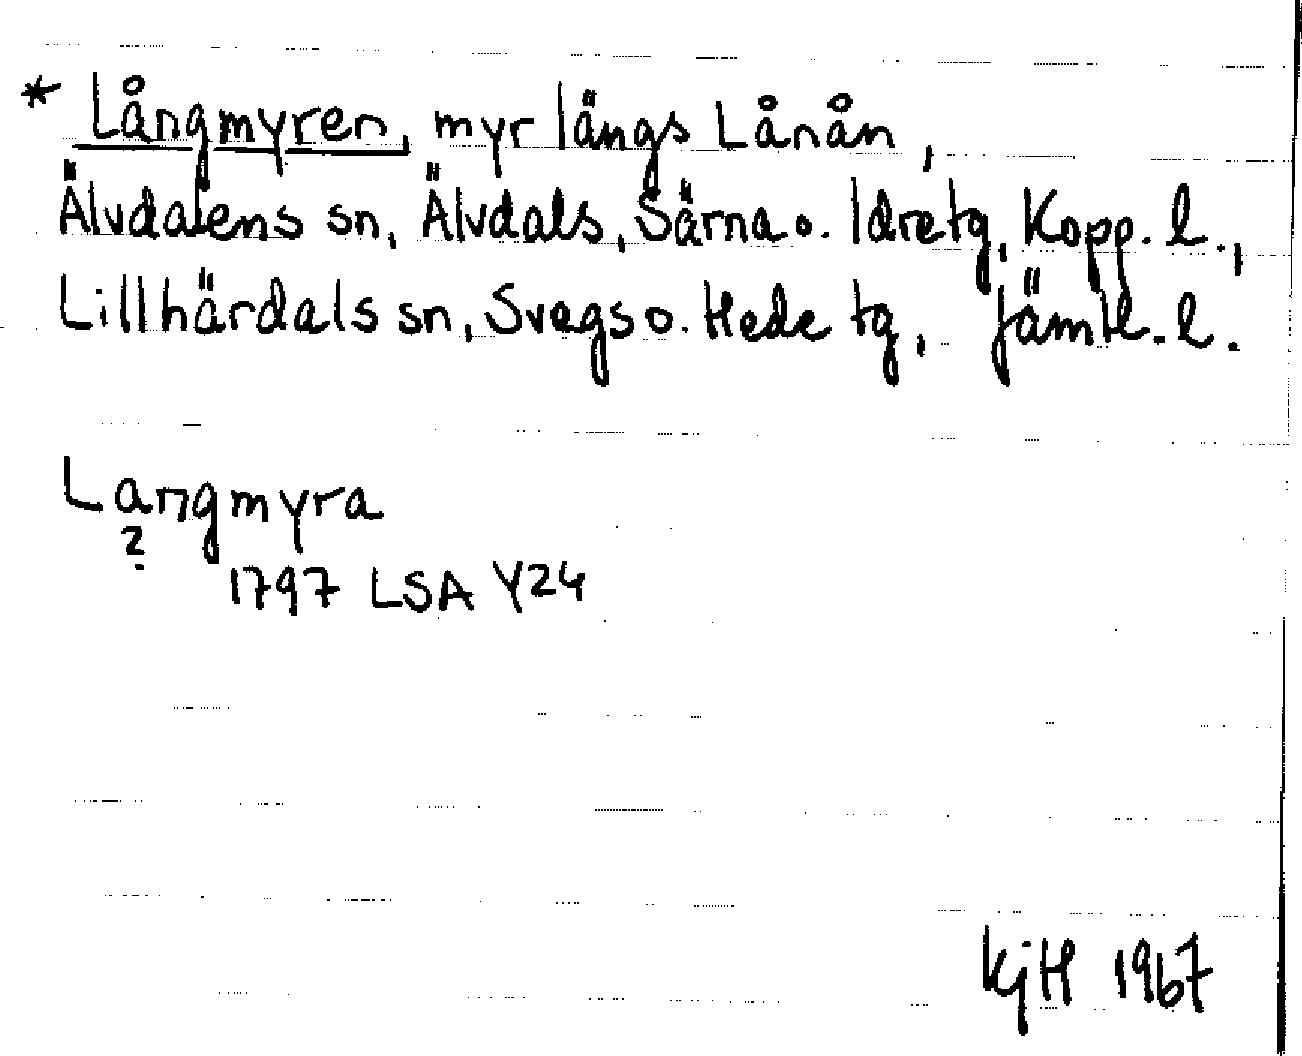 * Långmyren, myr längs Lånån,
Älvdalens sn, Älvdals, Särna o. Idre tg, Kopp. l.,
Lillhärdals sn, Svegs o. Hede tg, Jämtl. l.
Langmyra
?
1797 LSA Y24
KjH 1967